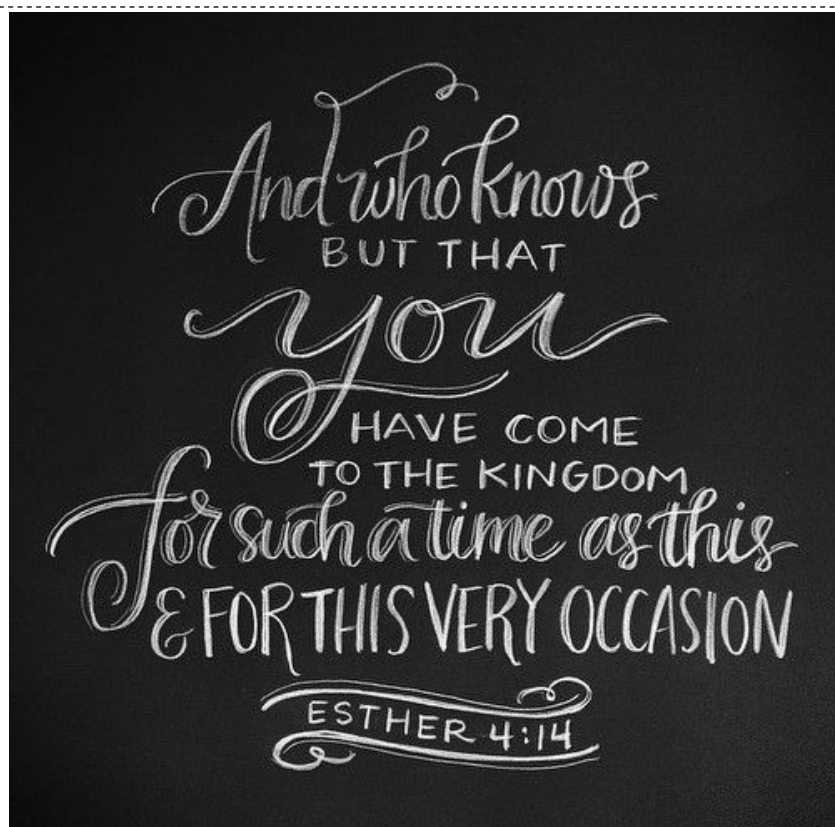 And who knows
BUT THAT
you
HAVE COME
TO THE KINGDOM
for such a time as this
& FOR THIS VERY OCCASION
ESTHER 4:14